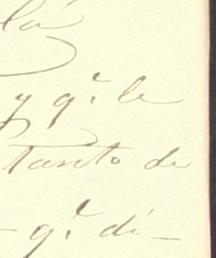 lá
y q.e le
tanto de
- q.e di-